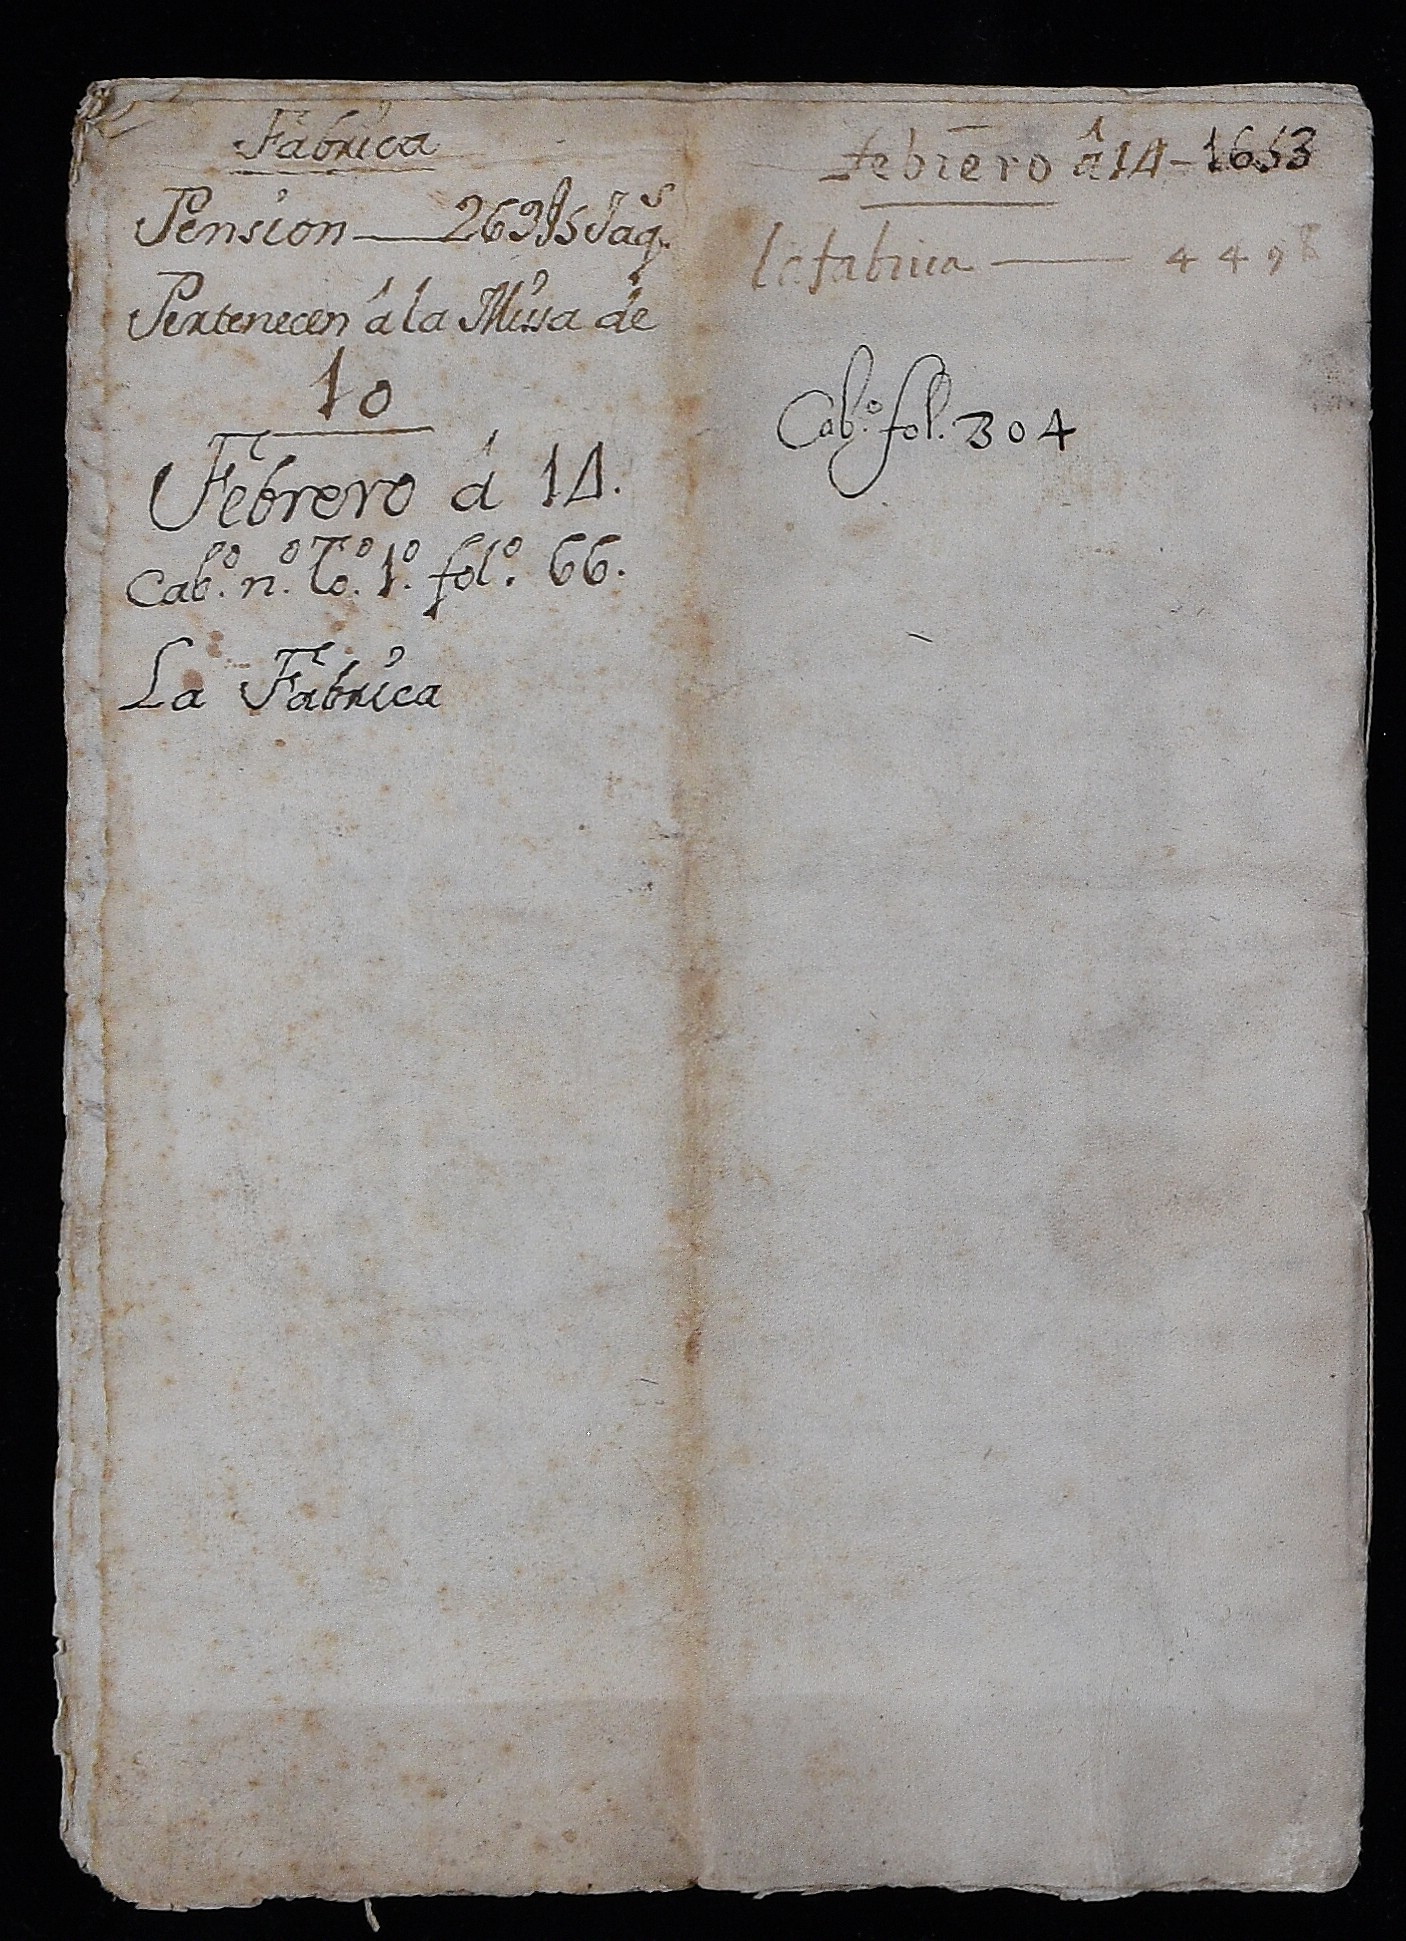 Fabrica
Pension — 269 ß Jaq.s
Pertenecen â la Missa de
10
Febrero â 14.
Cab.o n.o To.o 1.o fol.o 66.
La Fabrica
febrero â 14 - 1653
la fabrica — 449
Cab.o fol. 304